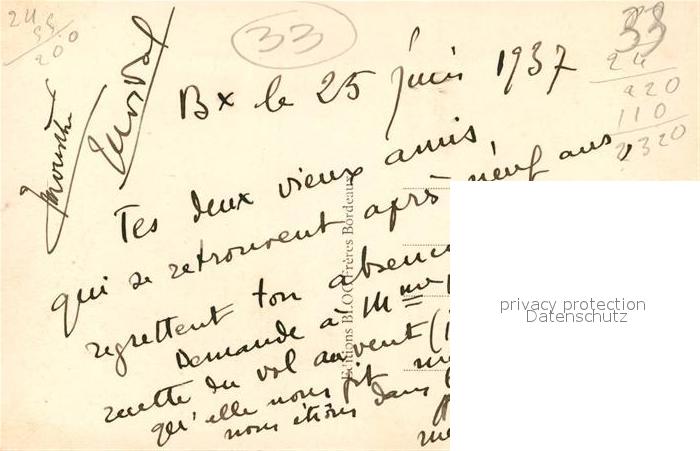 24
33
200
33
33
24
920
110
2320
Bx le 25 juin 1937
Tes deux vieux amis,
qui se retrouvent après neuf ans,
regrettent ton absence
Demande à Mme
recette du vol au vent (
qu'elle nous fit
nous étions dans
Editions BLOC Frères Bordeaux
privacy protection
Datenschutz